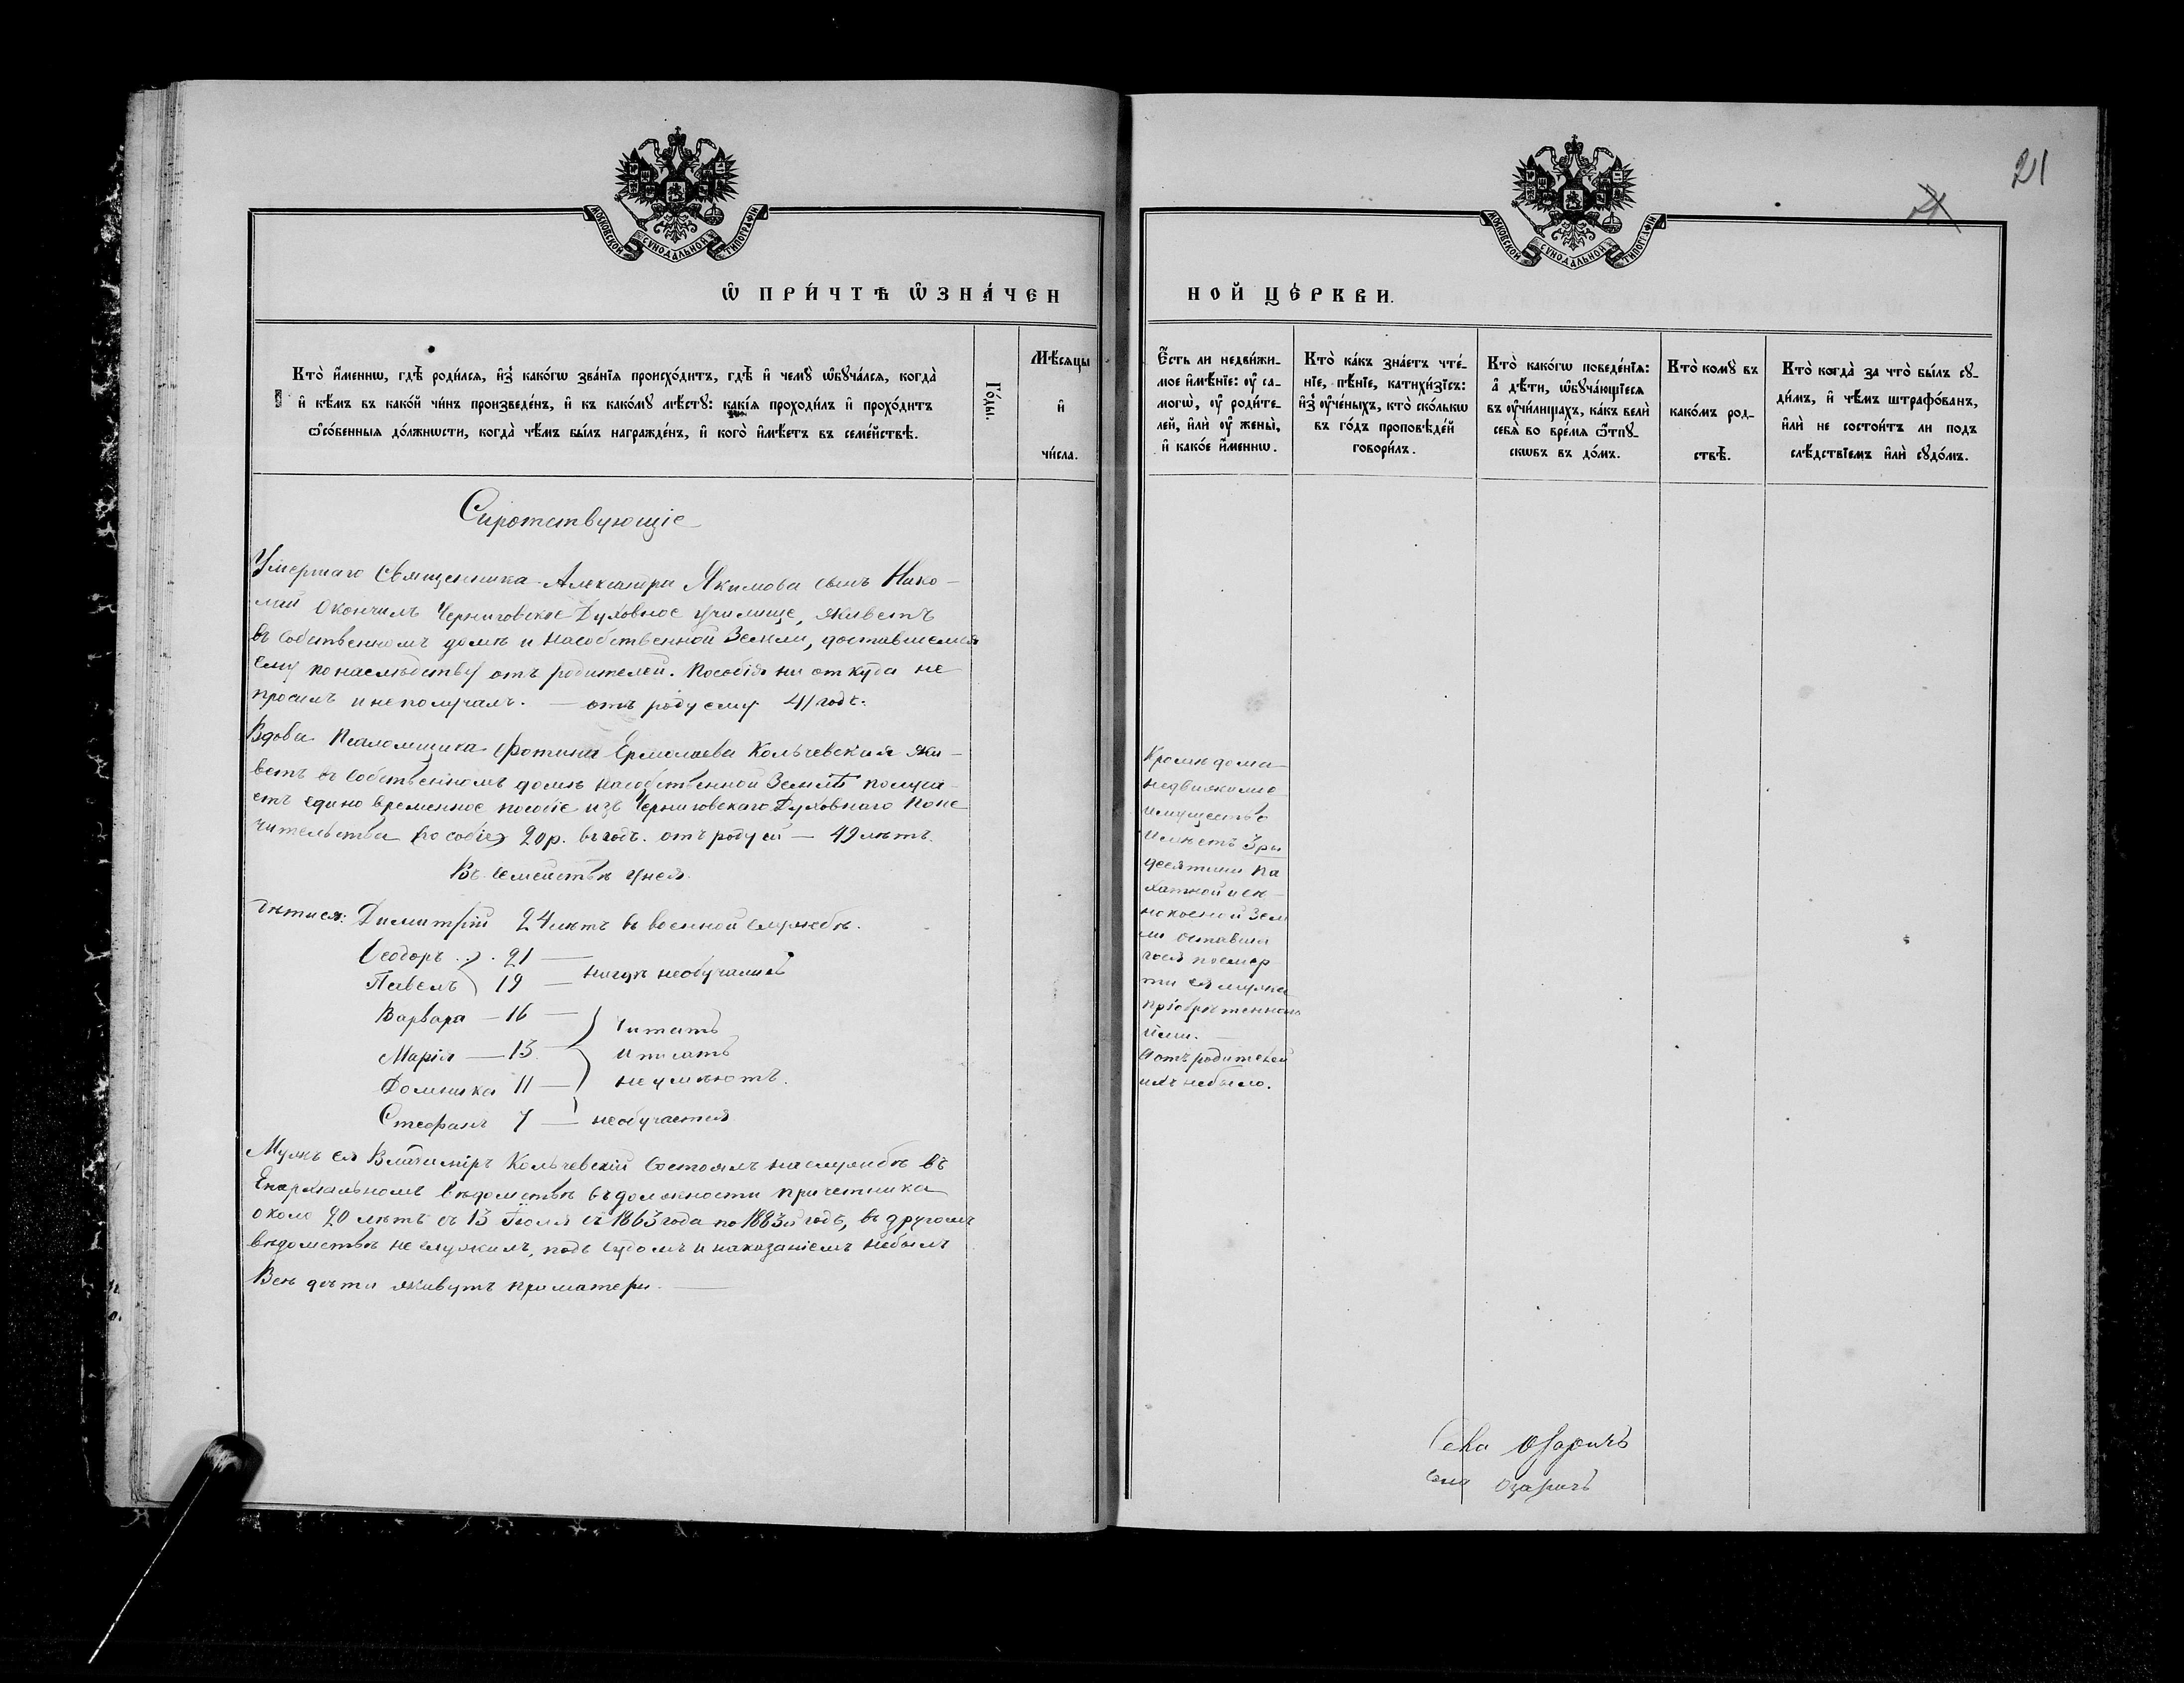 МОСКОВСКОЙ СѴНОДАЛЬНОЙ ТИПОГРАФІИ
Ѡ҆ ПРИ́ЧТѢ Ѡ҆ЗНА́ЧЕН
Кто̀ и҆́меннѡ, гдѣ̀ роди́лсѧ, и҆з̾ како́гѡ зва́нїѧ происхо́дитъ, гдѣ̀ и҆ чемꙋ̀ ѡ҆бꙋча́лсѧ, когда̀
и҆ кѣ́мъ въ како́й чи́нъ произведе́нъ, и҆ къ како́мꙋ мѣ́стꙋ: какі́ѧ проходи́лъ и҆ прохо́дитъ
ѻ҆со́бенныѧ до́лжнѡсти, когда̀ чѣ́мъ бы́лъ награжде́нъ, и҆ кого̀ и҆мѣ́етъ въ семе́йствѣ.
Го́ды.
Мѣ́сѧцы
и҆
чи́сла.
Сиротствующіе
Умершаго Священника Александра Якимова сынъ Нико-
лай Окончилъ Черниговское Духовное училище, живетъ
въ собственномъ домѣ и насобственной Земли, доставшемся
ему понаслѣдству отъ родителей. Пособія ни откуда не
просилъ инеполучалъ. — отъ роду ему 41 годъ.
Вдова Псаломщика Фотина Ермолаева Кольчевская жи-
ветъ въ Собственномъ домѣ насобственной Землѣ получа-
етъ единовременное пособіе изъ Черниговскаго Духовнаго Попе
чительства (пособіе) 20 р. въ годъ. отъ роду ей — 49 лѣтъ.
Въ семействѣ унея
дѣти ея: Димитрій 24 лѣтъ въ военной службѣ.
Ѳеодоръ . . 21 —
Павелъ 19 — нигдѣ необучались
Варвара — 16 — Читать
Марія — 13 — и писать
Домника 11 — не умѣютъ.
Стефанъ 7 — необучается
Мужъ ея Владиміръ Кольчевскій Состоялъ наслужбѣ въ
Епархіальномъ вѣдомствѣ въ должности причетника
около 20 лѣтъ съ 13 Іюля съ 1863 года по 1883й годъ, въ другомъ
вѣдомствѣ не служилъ, подъ судомъ и наказаніемъ небылъ
Всѣ дѣти живутъ приматери. —
21
МОСКОВСКОЙ СѴНОДАЛЬНОЙ ТИПОГРАФІИ
НОЙ ЦЕ́РКВИ.
Є҆́сть ли недви́жи-
мое и҆мѣ́нїе: ᲂу҆ са-
могѡ̀, ᲂу҆ роди́те-
лей, и҆лѝ ᲂу҆ жены̀,
и҆ како́е и҆́меннѡ.
Кто̀ ка́къ зна́етъ чте́-
нїе, пѣ́нїе, катихи́зїсъ:
и҆з̾ ᲂу҆че́ныхъ, кто̀ ско́лькѡ
въ го́дъ проповѣ́дей
говори́лъ.
Кто̀ како́гѡ поведе́нїѧ:
а҆ дѣ́ти, ѡ҆бꙋча́ющїесѧ
въ ᲂу҆чи́лищахъ, ка́къ велѝ
себѧ̀ во вре́мѧ ѿпꙋ-
скѡвъ въ до́мъ.
Кто̀ комꙋ̀ въ
како́мъ род-
ствѣ̀.
Кто̀ когда̀ за что̀ бы́лъ сꙋ-
ди́мъ, и҆ чѣ́мъ штрафо́ванъ,
и҆лѝ не состои́тъ ли подъ
слѣ́дствїемъ и҆лѝ сꙋдо́мъ.
Кромѣ дома
недвижимо
имущество
имѣетъ 3 ри
десятины па
хатной и сѣ-
нокосной Зем
ли оставша
гося посмер
ти ея мужа
пріобрѣтенной
ими.
А отъ родителей
ихъ небыло.
Села Озаричъ
Села Озаричъ